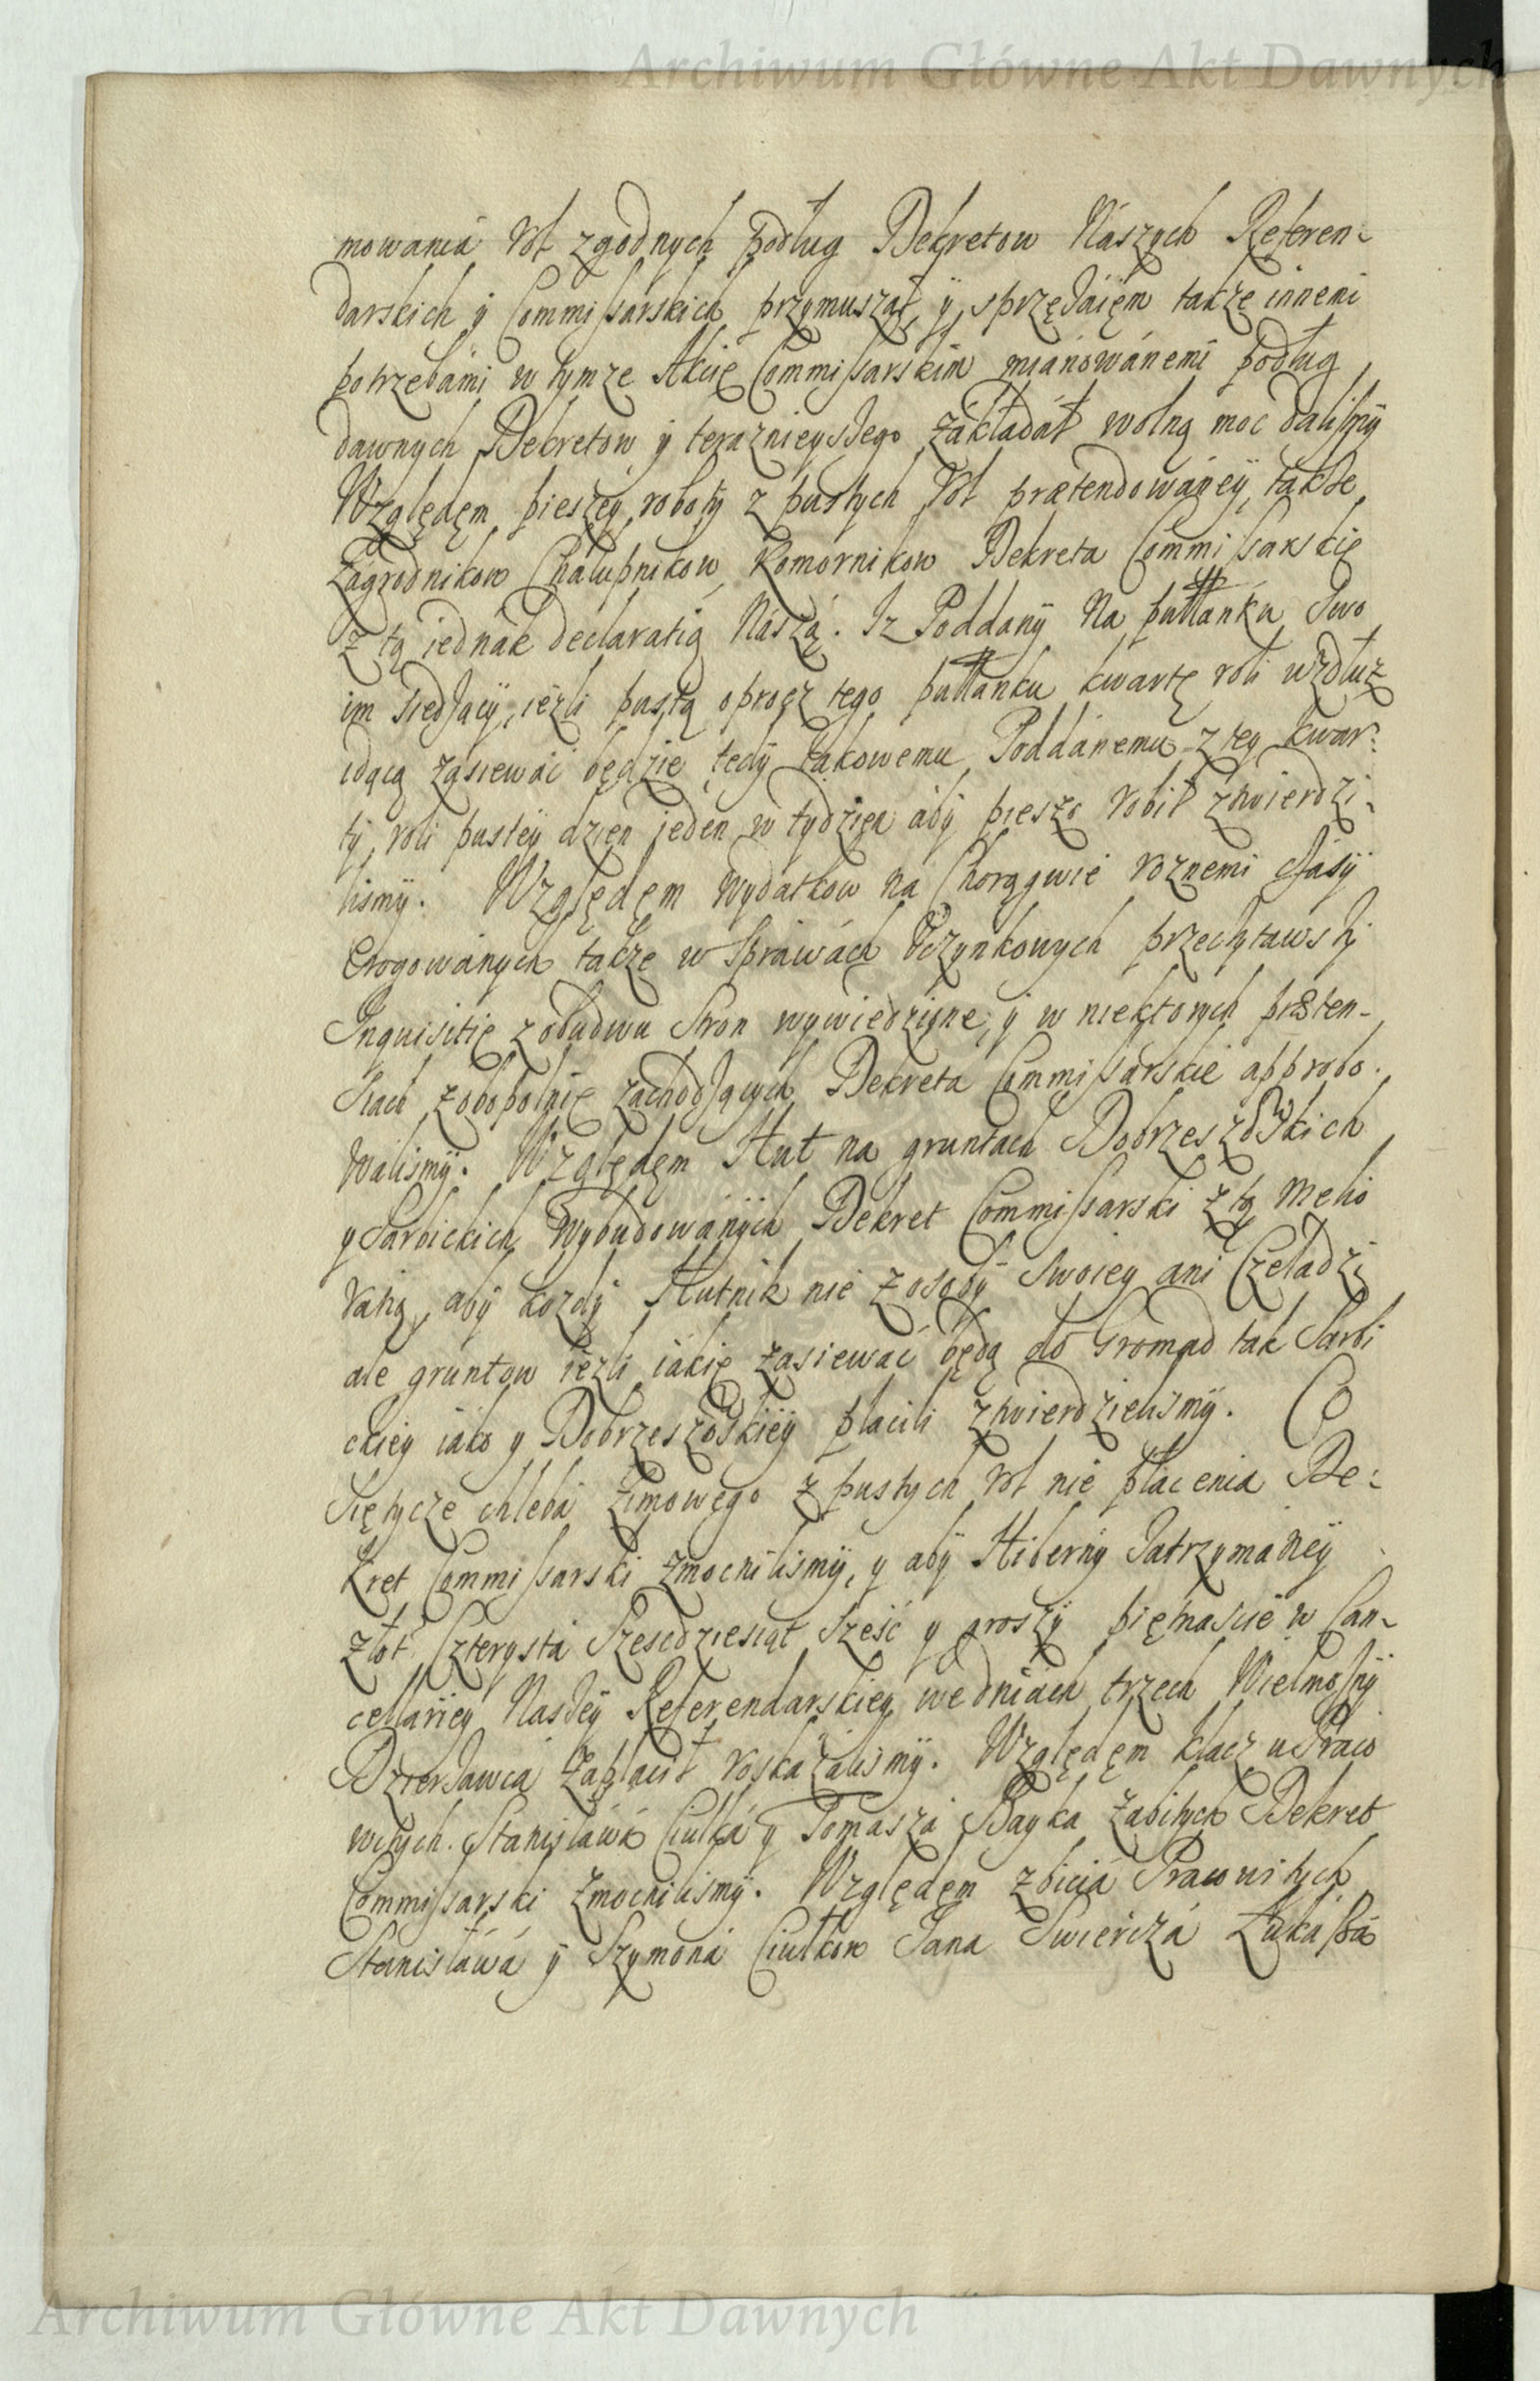 Archiwum Główne Akt Dawnych
mowania Rol zgodnych podług Dekretow Naszych Referen-
darskich y Commissarskich przymuszał, y sprzężaięm takze innemi
potrzebami w tymze Akcie Commissarskim mianowanemi podług
dawnych Dekretow y terazniejszego zakładał wolną moc dalismy
Względęm pieszey roboty z pustych Rol prætendowaney, także
Zagrodnikow Chałupnikow Komornikow Dekreta Commissarskie
z tą iednak declaratią Naszą. Iz Poddany Na pułłanku Swo
im siedzący, iezli pustą oprocz tego pułłanku kwartę roli wzdłuz
idącą zasiewac będzie tedy takowemu Poddanemu z tey kwar-
ty roli pustey dzien jeden w tydzien aby pieszo robił ztwierdzi-
lismy. Względęm Wydatkow na Chorągwie roznemi czasy
Erogowanych także w Sprawach Uczynkowych przeczytawszy
Inquisitie z obudwu Stron wywiedzione, y w niektorych præten-
siach zobopolnie zachodzących Dekreta Commissarskie approbo-
walismy. Względęm Hut na gruntach Dobrzeszowskich
y Sarbickich Wybudowanych Dekret Commissarski z tą Melio
ratią, aby kozdy Hutnik nie z osoby Swoiey ani Czeladzi
ale gruntow iezli iakie zasiewać będą do Gromad tak Sarbi
ckiey iako y Dobrzeszowskiey płacili ztwierdzielismy. Co
Siętycze chleba Zimowego z pustych rol nie płacenia De-
kret Commissarski zmocnilismy, y aby Hiberny Zatrzymaney
złot Czterysta Szescdziesiąt Sześć y groszy piętnascie w Can-
cellariey Naszey Referendarskiey wedniach trzech Wielmożny
Dzierżawca Zapłacił roskazalismy. Względęm klacz u Praco
witych Stanisława Ciulka y Tomasza Bayka Zabitych Dekret
Commissarski Zmocnilismy. Względęm zbicia Pracowitych
Stanisława y Szymona Ciulkow Jana Swiercza Łukasza
Archiwum Główne Akt Dawnych